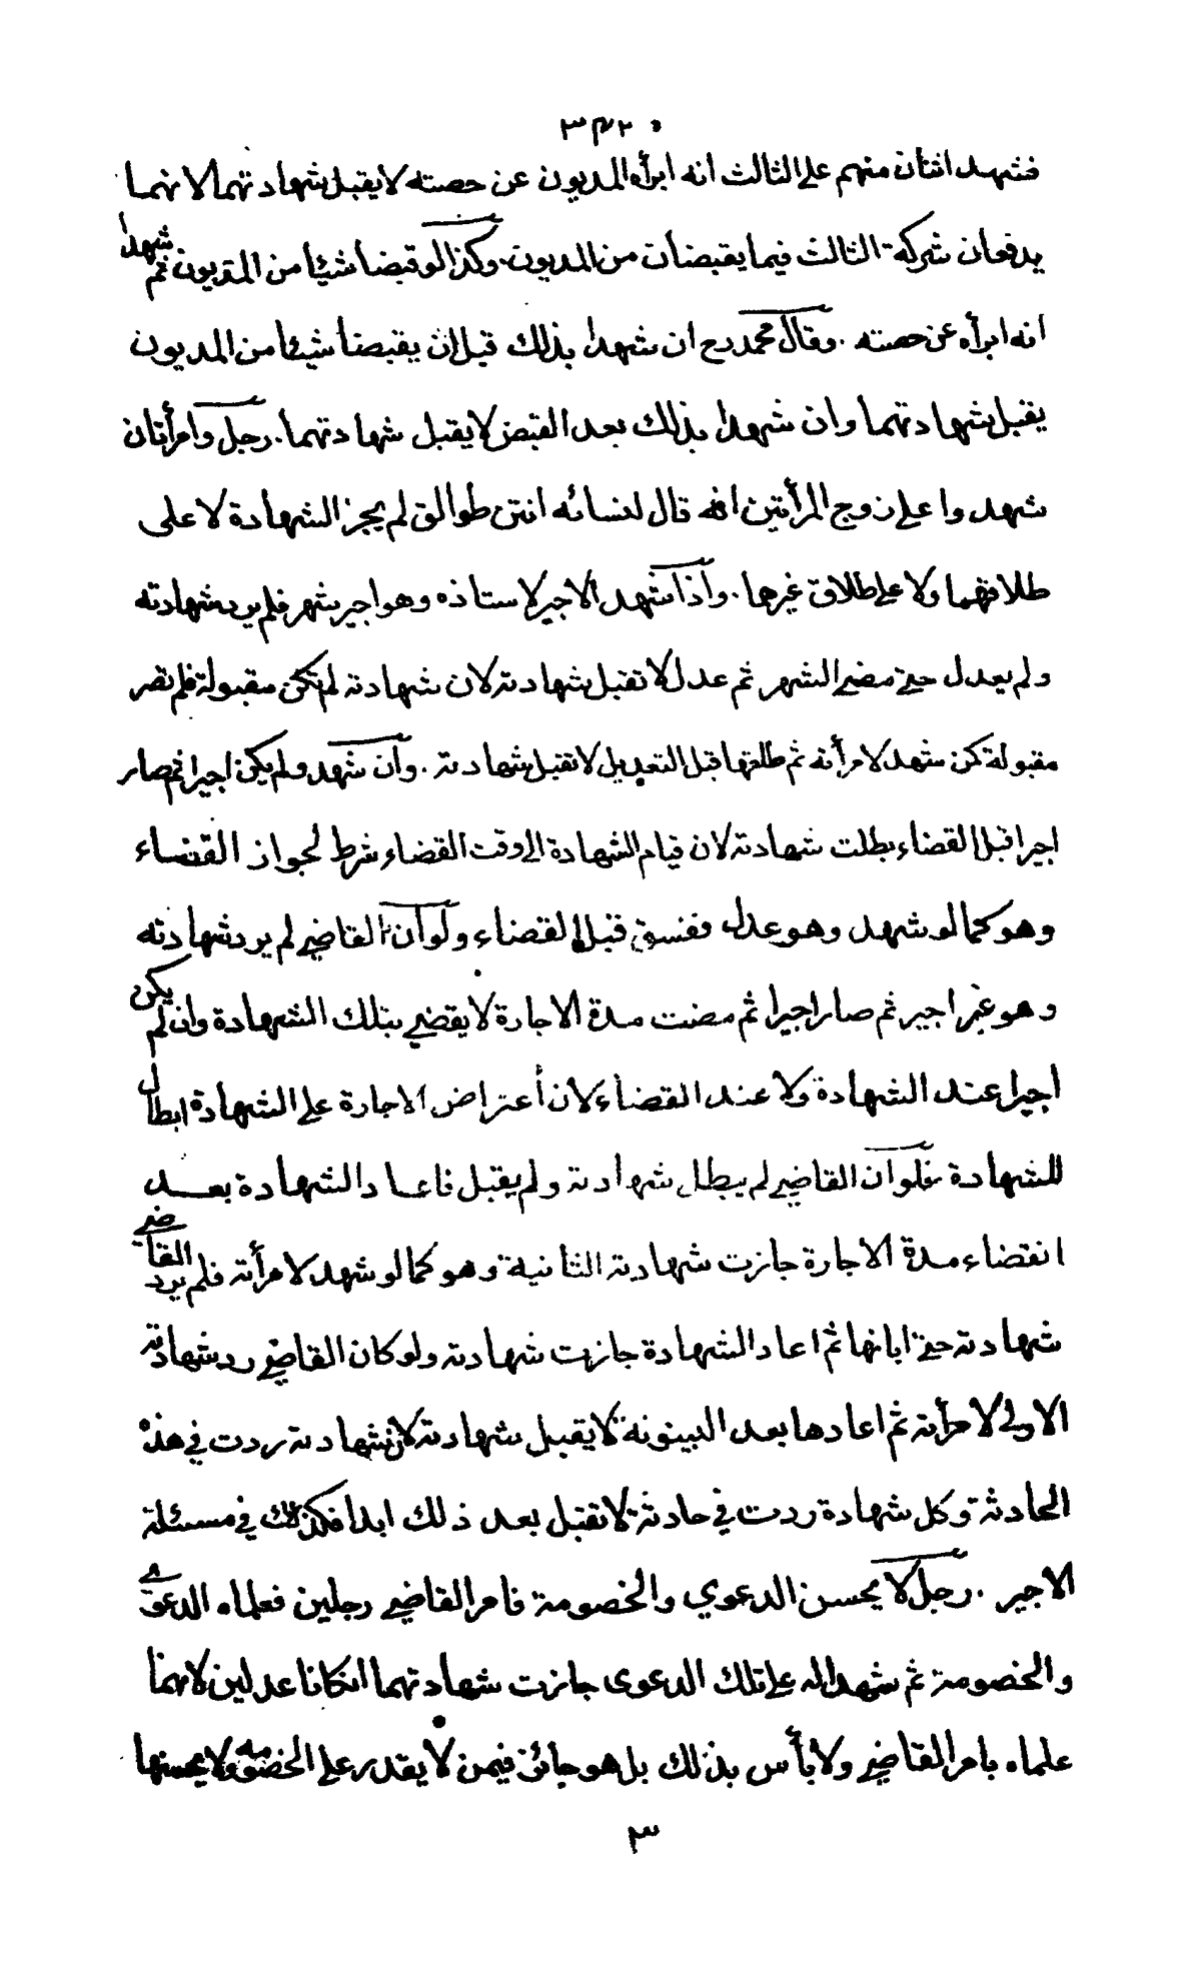 فشهد اثنان منهم على الثالث انه ابرأه المديون عن حصته لا يقبل شهادتهما لانهما
يدفعان شركة الثالث فيما يقبضان من المديون. وكذا لو قبضا شيئا من المديون ثم شهدا
انه ابرأه عن حصته. وقال محمد رح ان شهدا بذلك قبل ان يقبضا شيئا من المديون
يقبل شهادتهما وان شهدا بذلك بعد القبض لا يقبل شهادتهما. رجل وامرأتان
شهدوا على زوج المرأتين انه قال لنسائه انتن طوالق لم يجز الشهادة لا على
طلاقهما ولا على طلاق غيرها. واذا شهد الاجير لاستاذه وهو اجير شهر فلم يرد شهادته
ولم يعدل حتى مضى الشهر ثم عدل لا تقبل شهادته لان شهادته لم تكن مقبولة فلم تصر
مقبولة كمن شهد لامرأته ثم طلقها قبل التعديل لا تقبل شهادته. وان شهد ولم يكن اجيرا ثم صار
اجيرا قبل القضاء بطلت شهادته لان قيام الشهادة الى وقت القضاء شرط لجواز القضاء
وهو كما لو شهد وهو عدل ففسق قبل القضاء ولو ان القاضي لم يرد شهادته
وهو غير اجير ثم صار اجيرا ثم مضت مدة الاجارة لا يقضي بتلك الشهادة وان لم يكن
اجيرا عند الشهادة ولا عند القضاء لان أعتراض الاجارة على الشهادة ابطال
للشهادة فلو ان القاضي لم يبطل شهادته ولم يقبل فاعاد الشهادة بعد
انقضاء مدة الاجارة جازت شهادته الثانية وهو كما لو شهد لامرأته فلم يرد القاضي
شهادته حتى ابانها ثم اعاد الشهادة جازت شهادته ولو كان القاضي رد شهادته
الاولى لامرأته ثم اعادها بعد البينونة لا يقبل شهادته لان شهادته ردت في هذه
الحادثة وكل شهادة ردت في حادثة لا تقبل بعد ذلك ابدا فكذلك في مسئلة
الاجير. رجل لا يحسن الدعوي والخصومة فامر القاضي رجلين فعلماه الدعوى
والخصومة ثم شهدا له على تلك الدعوى جازت شهادتهما انكانا عدلين لانهما
علماه بامر القاضي ولا بأس بذلك بل هو جائز فيمن لا يقدر على الخصومة ولا يحسنها
٣